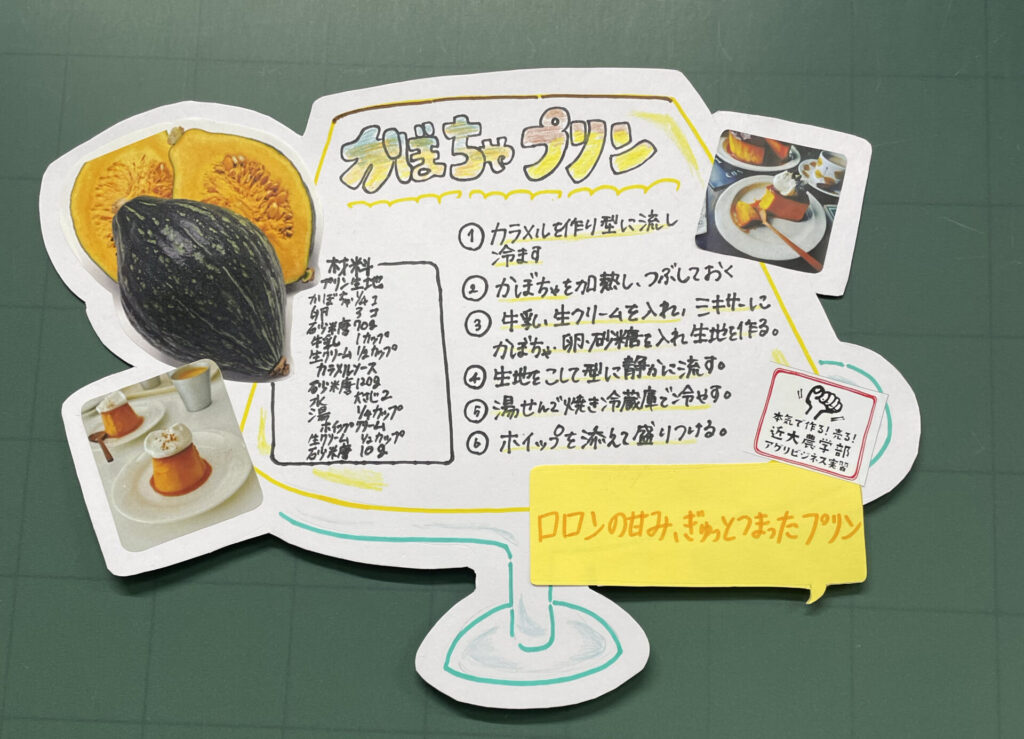 かぼちゃプリン
材料
プリン生地
かぼちゃ1/4コ
卵 3コ
砂糖 70g
牛乳 1カップ
生クリーム 1/2カップ
カラメルソース
砂糖 120g
水 大さじ2
湯 1/4カップ
ホイップクリーム
生クリーム 1/2カップ
砂糖 10g
① カラメルを作り型に流し
冷ます
② かぼちゃを加熱し、つぶしておく
③ 牛乳、生クリームを入れ、ミキサーに
かぼちゃ・卵・砂糖を入れ生地を作る。
④ 生地をこして型に静かに流す。
⑤ 湯せんで焼き冷蔵庫で冷やす。
⑥ ホイップを添えて盛りつける。
本気で作る!売る!
近大農学部
アグリビジネス実習
ロロンの甘み、ぎゅっとつまったプリン